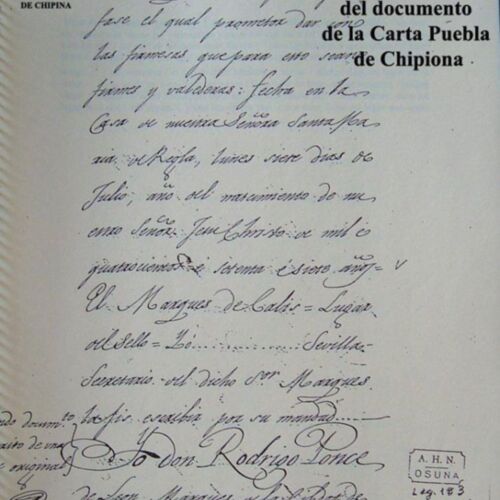 DE CHIPINA
del documento
de la Carta Puebla
de Chipiona
fase el qual prometor dar con
las firmesas que para esto sean
firmes y valederas: fecha en la
Casa de nuestra Señora Santa Ma
ria de Regla, lunes siete dias de
Julio, año del nascimiento de nu
estro Señor Jesu Christo de mil e
quatrocientos é setenta é siete años=
El Marques de Calis= Lugar
del sello= Yo Sevilla=
Secretario del dicho Sor. Marques
la fis escribir por su mandad
Yo don Rodrigo Ponce
de Leon Marques
A.H.N.
OSUNA
Leg. 183